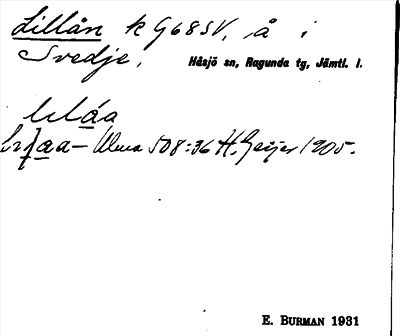 Lillån k G685V, å i
Svedje, Håsjö sn, Ragunda tg, Jämtl. l.
Ulma 508:36 H. Geijer 1905.
E. BURMAN 1931